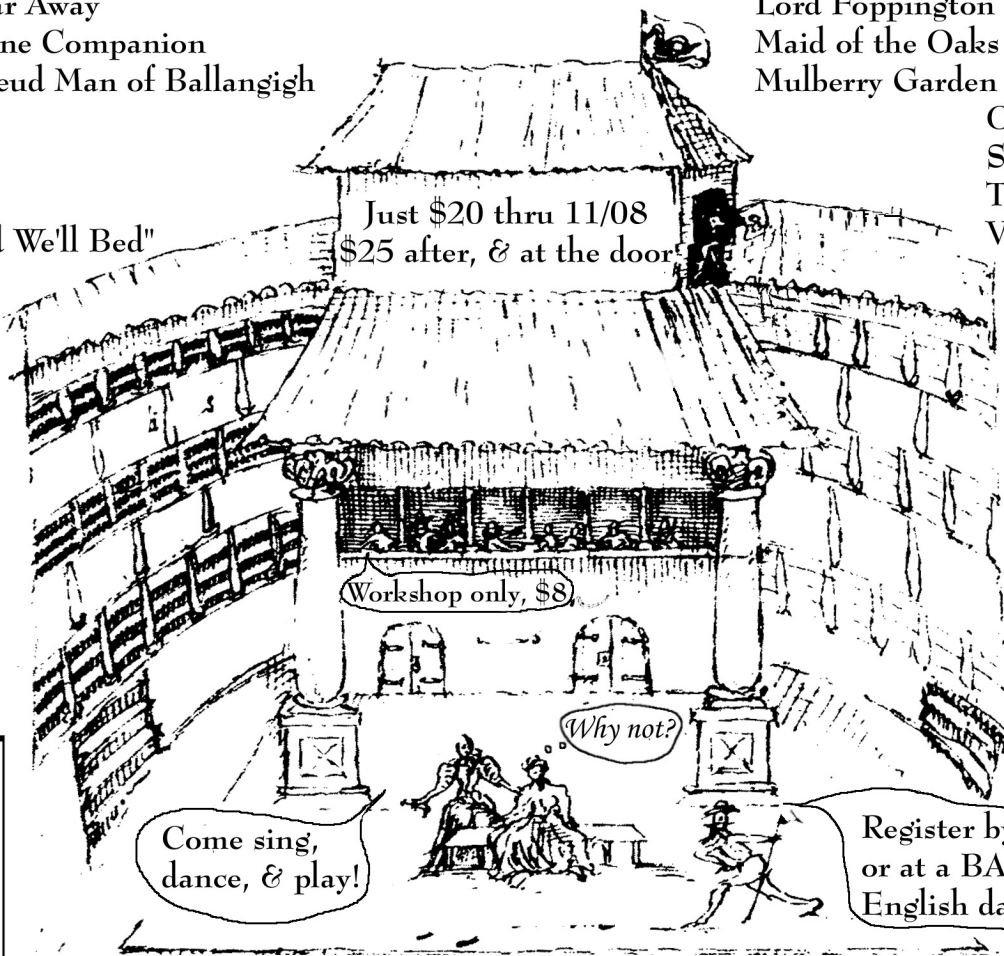 ar Away
ne Companion
eud Man of Ballangigh
Lord Foppington
Maid of the Oaks
Mulberry Garden
C
S
T
V
d We'll Bed"
Just $20 thru 11/08
$25 after, & at the door
Workshop only, $8
Why not?
Come sing,
dance, & play!
Register by
or at a BA
English da